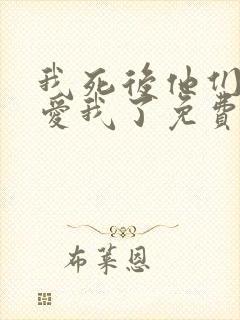 我死後他们
愛我了免費
布萊恩